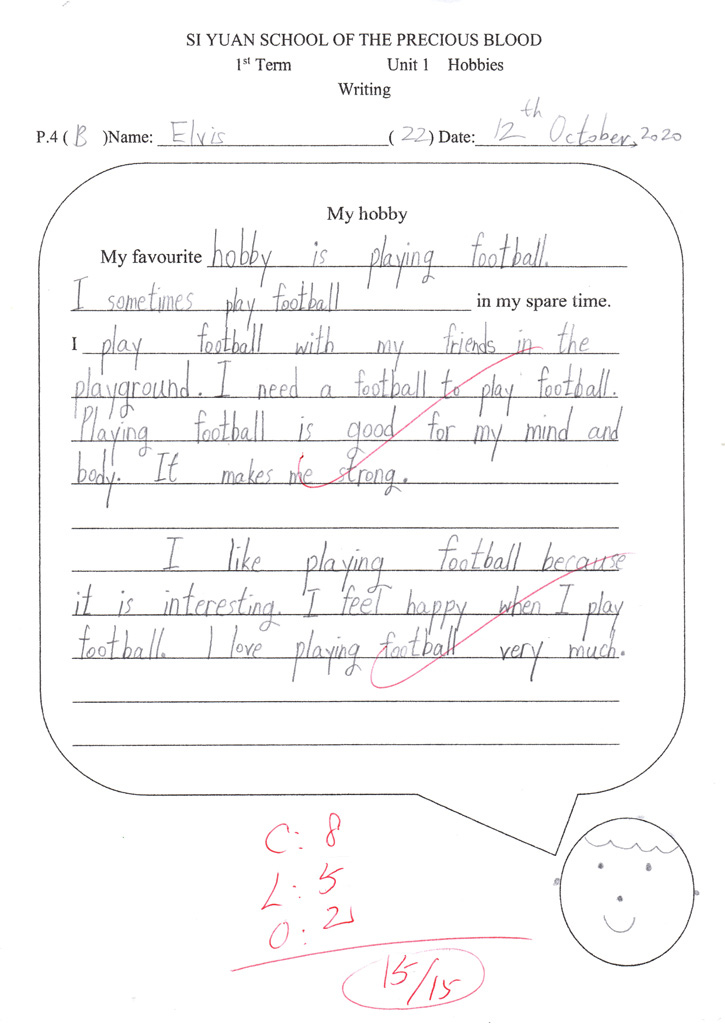 SI YUAN SCHOOL OF THE PRECIOUS BLOOD
1st Term Unit 1 Hobbies
Writing
P.4 ( B )Name: Elvis ( 22 ) Date: 12th October, 2020
My hobby
My favourite hobby is playing football.
I sometimes play football in my spare time.
I play football with my friends in the
playground. I need a football to play football.
Playing football is good for my mind and
body. It makes me strong.
I like playing football because
it is interesting. I feel happy when I play
football. I love playing football very much.
C: 8
L: 5
O: 2
15/15